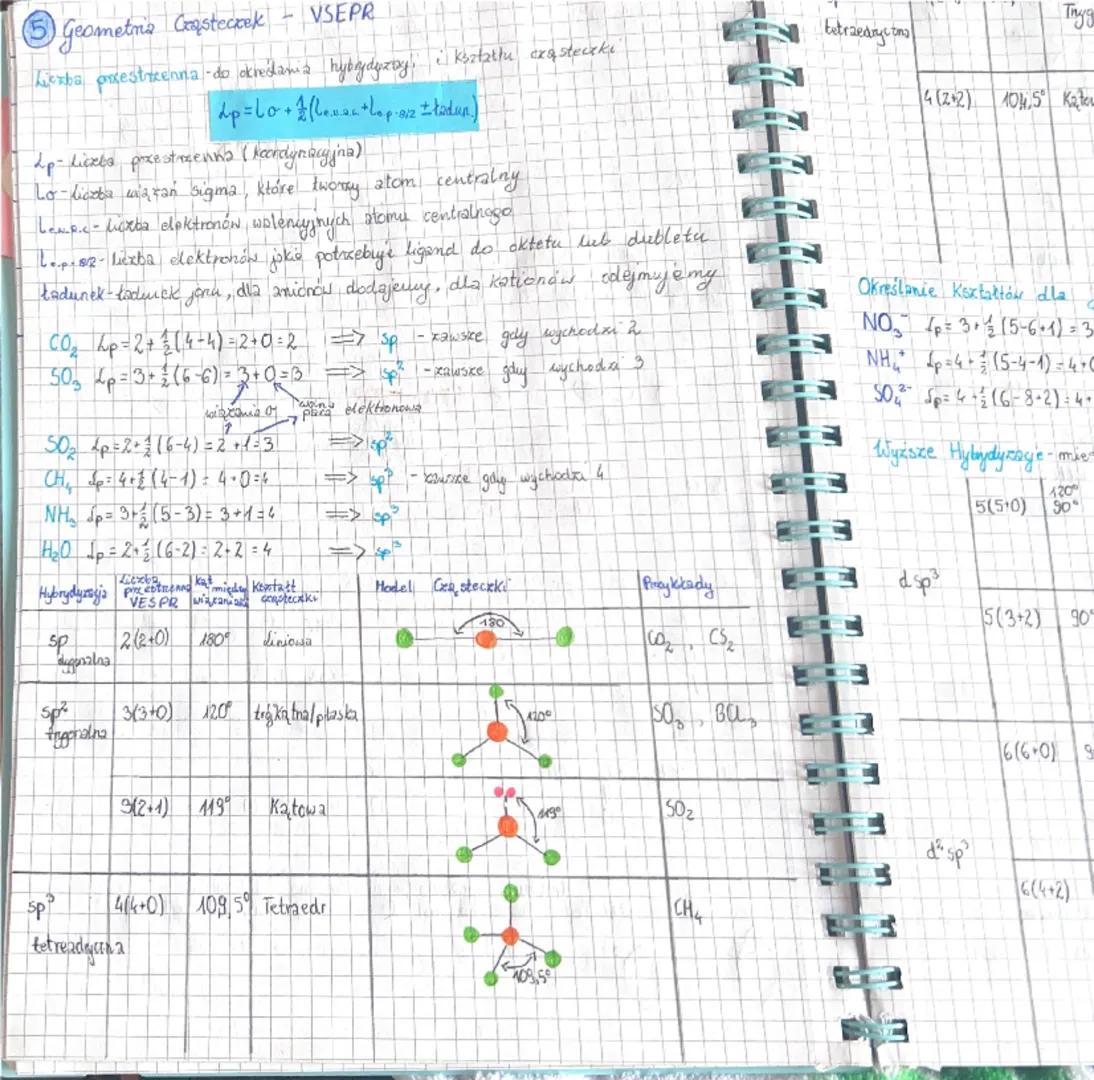 5 Geometria Cząsteczek - VSEPR
Liczba przestrzenna - do określania hybrydyzacji i kształtu cząsteczki
Lp = Lσ + ½(Le.w.a.c. + Le.p.8/2 ± ładun.)
Lp - liczba przestrzenna (koordynacyjna)
Lσ - liczba wiązań sigma, które tworzy atom centralny
Le.w.a.c - liczba elektronów walencyjnych atomu centralnego
Le.p.8/2 - liczba elektronów jakie potrzebuje ligand do oktetu lub dubletu
ładunek - ładunek jonu, dla anionów dodajemy, dla kationów odejmujemy
CO₂ Lp = 2 + ½(4-4) = 2+0 = 2 => sp - zawsze gdy wychodzi 2
SO₃ Lp = 3 + ½(6-6) = 3+0 = 3 => sp² - zawsze gdy wychodzi 3
wiązania σ wolna para elektronowa
SO₂ Lp = 2 + ½(6-4) = 2+1 = 3 => sp²
CH₄ Lp = 4 + ½(4-4) = 4+0 = 4 => sp³ - zawsze gdy wychodzi 4
NH₃ Lp = 3 + ½(5-3) = 3+1 = 4 => sp³
H₂O Lp = 2 + ½(6-2) = 2+2 = 4 => sp³
Hybrydyzacja Liczba przestrzenna VESPR kąt między wiązaniami Kształt cząsteczki Model Cząsteczki Przykłady
sp dygonalna 2(2+0) 180° liniowa 180 CO₂, CS₂
sp² trygonalna 3(3+0) 120° trójkątna/płaska 120° SO₃, BCl₃
3(2+1) 119° Kątowa 119° SO₂
sp³ 4(4+0) 109,5° Tetraedr 109,5° CH₄
tetraedryczna
tetraedryczna
4(2+2) 104,5°
Określanie Kształtów dla
NO₃⁻ Lp = 3 + ½(5-6+1) = 3
NH₄⁺ Lp = 4 + ½(5-4-1) = 4+0
SO₄²⁻ Lp = 4 + ½(6-8+2) = 4+
Wyższe Hybrydyzacje -
5(5+0) 120° 90°
dsp³
5(3+2) 90°
6(6+0)
d²sp³
6(4+2)